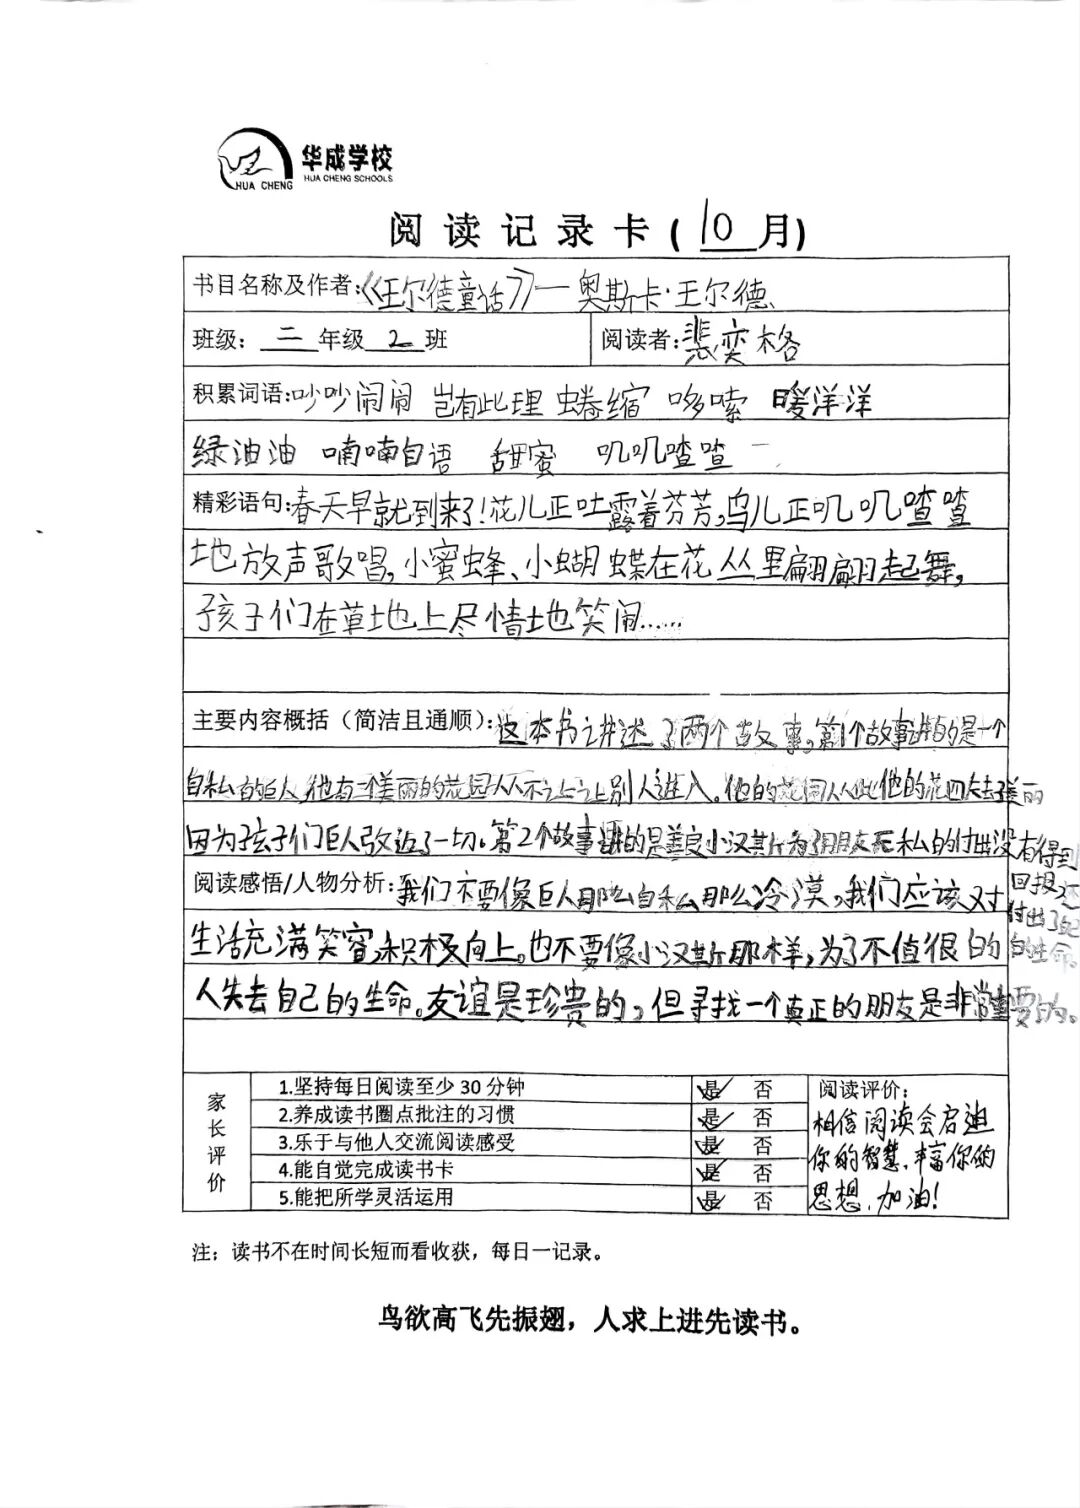 华成学校
HUA CHENG SCHOOLS
HUA CHENG
阅读记录卡（10月）
书目名称及作者：《王尔德童话》—奥斯卡·王尔德
班级：二年级2班 阅读者：裴奕格
积累词语：吵吵闹闹 岂有此理 蜷缩 哆嗦 暖洋洋
绿油油 喃喃自语 甜蜜 叽叽喳喳
精彩语句：春天早就到来了！花儿正吐露着芬芳，鸟儿正叽叽喳喳
地放声歌唱，小蜜蜂、小蝴蝶在花丛里翩翩起舞，
孩子们在草地上尽情地笑闹……
主要内容概括（简洁且通顺）：这本书讲述了两个故事，第1个故事讲的是一个
自私的巨人，他有一个美丽的花园从不让别人进入。他的花园从此失去了美丽
因为孩子们巨人改近了一切。第2个故事讲的是善良小汉斯为了朋友无私的付出没有得到
回报还
付出了自己
的生命。
阅读感悟/人物分析：我们不要像巨人那么自私那么冷漠，我们应该对
生活充满笑容，积极向上。也不要像小汉斯那样，为了不值很的
人失去自己的生命。友谊是珍贵的，但寻找一个真正的朋友是非常重要的。
家长评价
1.坚持每日阅读至少30分钟 是✓ 否
2.养成读书圈点批注的习惯 是✓ 否
3.乐于与他人交流阅读感受 是✓ 否
4.能自觉完成读书卡 是✓ 否
5.能把所学灵活运用 是✓ 否
阅读评价：
相信阅读会启迪
你的智慧，丰富你的
思想，加油！
注：读书不在时间长短而看收获，每日一记录。
鸟欲高飞先振翅，人求上进先读书。